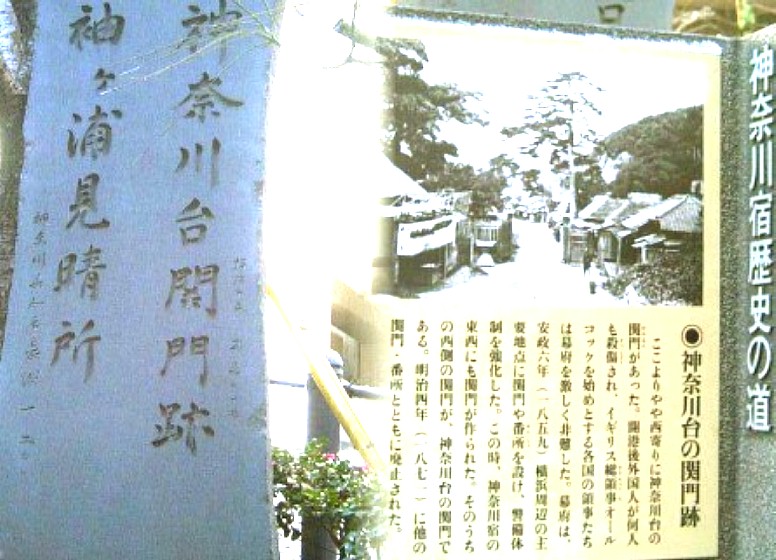 神奈川台関門跡
袖ヶ浦見晴所
神奈川宿歴史の道
●神奈川台の関門跡
ここよりやや西寄りに神奈川台の
関門があった。開港後外国人が何人
も殺傷され、イギリス総領事オール
コックを始めとする各国の領事たち
は幕府を激しく非難した。幕府は、
安政六年（一八五九）横浜周辺の主
要地点に関門や番所を設け、警備体
制を強化した。この時、神奈川宿の
東西にも関門が作られた。そのうち
の西側の関門が、神奈川台の関門で
ある。明治四年（一八七一）に他の
関門・番所とともに廃止された。